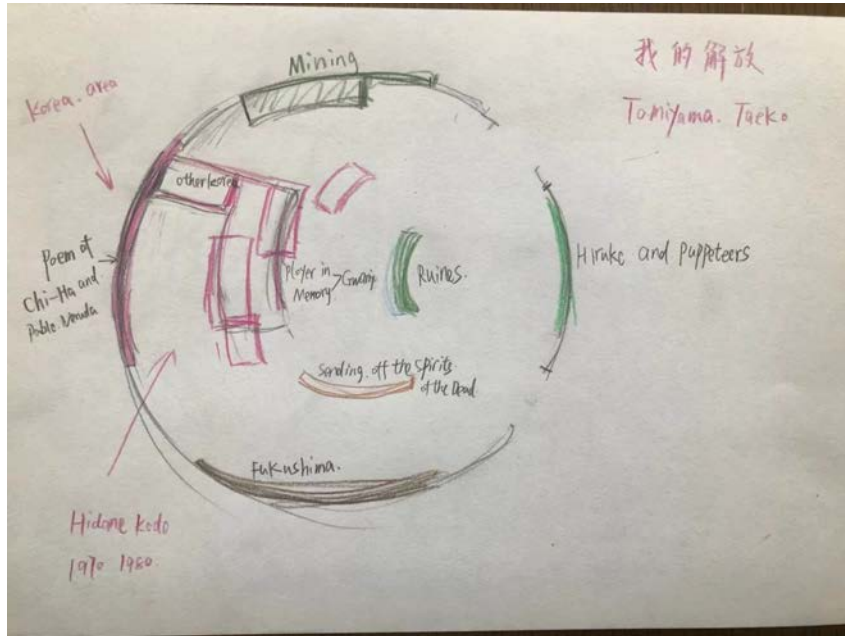 Mining
我的解放
Tomiyama. Taeko
Korea. area
other korea
Poem of
Chi-Ha and
Pablo. Neruda
Player in
Memory
Ruines.
Hiruko and Puppeteers
Sending. off the Spirits
of the Dead.
Fukushima.
Hidane Kodo
1970 1980.